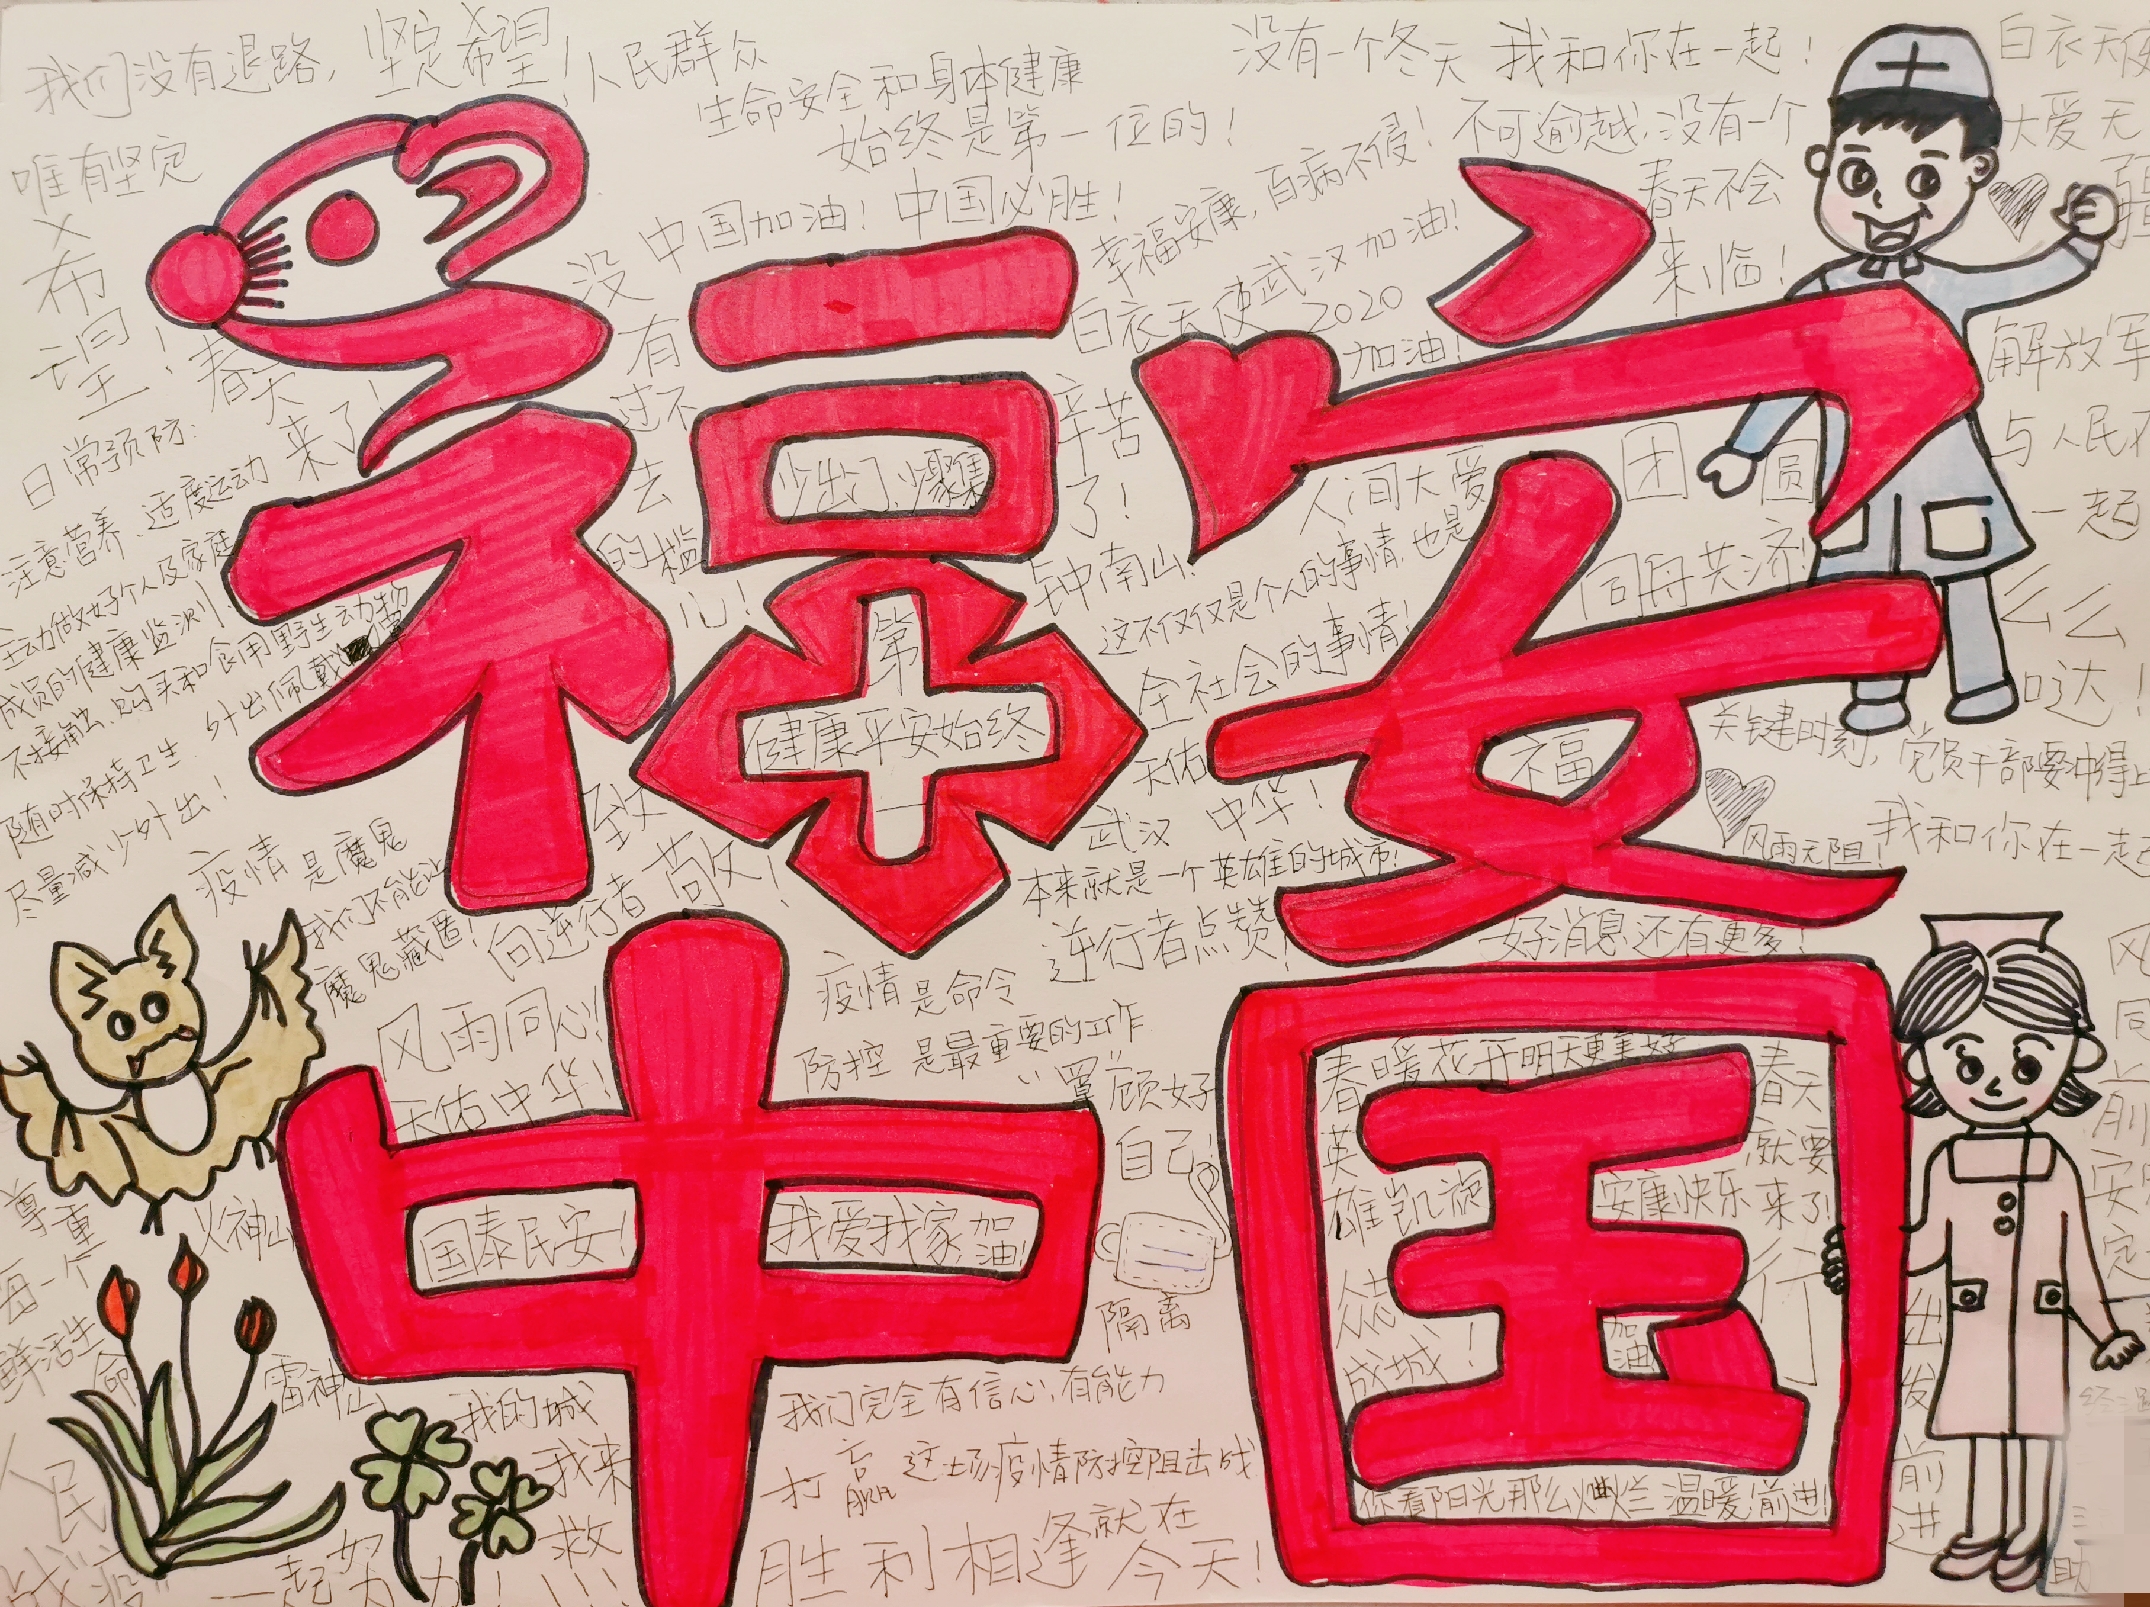 我们没有退路，坚定希望！人民群众
生命安全和身体健康
始终是第一位的！
唯有坚定
希
望！春天
来了！
没有一个冬天
不可逾越，没有一个
春天不会
来临！
我和你在一起！
白衣天使
大爱无
疆
中国加油！中国必胜！
没
有
过不
去
的槛
儿！
幸福安康，百病不侵！
白衣天使武汉加油！
2020
加油！
辛苦
了！
解放军
与人民
一起
么么
哒！
日常预防：
注意营养、适度运动
主动做好个人及家庭
成员的健康监测！
不接触、购买和食用野生动物
随时保持卫生，外出佩戴口罩
尽量减少外出！
少出门少聚集
福安
中国
第
健康平安始终
一
钟南山！
人间大爱
这不仅仅是个人的事情，也是
全社会的事情！
团圆
同舟共济！
福
天佑
中华！
武汉
本来就是一个英雄的城市！
关键时刻，党员干部要冲得上
风雨无阻！
我和你在一起
疫情是魔鬼
我们不能让
魔鬼藏匿！
致
敬！
向逆行者
逆行者点赞！
好消息还有更多！
疫情是命令
防控是最重要的工作
风雨同心！
天佑中华！
"罩"顾好
自己！
隔离
国泰民安！
我爱我家，加油！
春暖花开明天更美好
春天
就要
来了！
英
雄凯旋
安康快乐
众志
成城！
加油
行
你看阳光那么灿烂温暖！前进！
出
发
前
进
风
同
前
安
定
尊重
每一个
鲜活生
命
火神山
雷神山
我的城
我来
救
！！！
人民
战"疫"
一起努力！
我们完全有信心，有能力
打赢这场疫情防控阻击战
胜利相逢就在
今天！
助